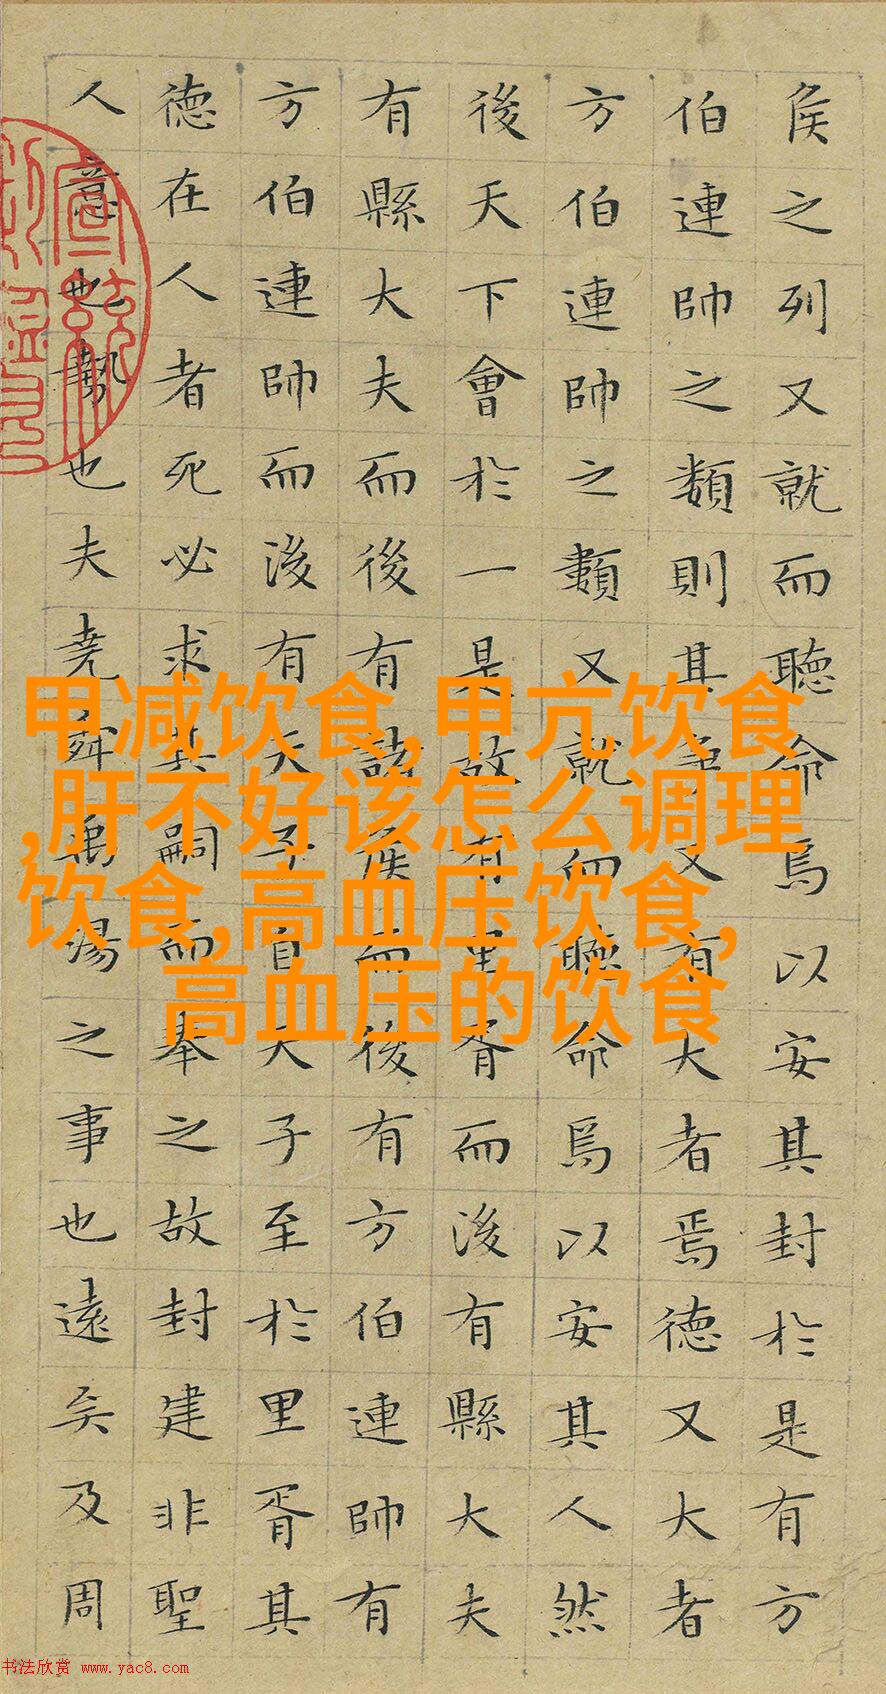 侯之列又就而聽命焉以安其封於是有方
伯連帥之類則其爭又有大者焉德又大者
方伯連帥之類又就而聽命焉以安其人然
後天下會於一是故有里胥而後有縣大夫
有縣大夫而後有諸侯而後有方伯連帥有
方伯連帥而後有天子自天子至於里胥其
德在人者死必求其嗣而奉之故封建非聖
人意也勢也夫堯舜禹湯之事也遠矣及周
甲减饮食,甲亢饮食
,肝不好该怎么调理
饮食,高血压饮食,
高血压的饮食
书法欣赏 www.yac8.com